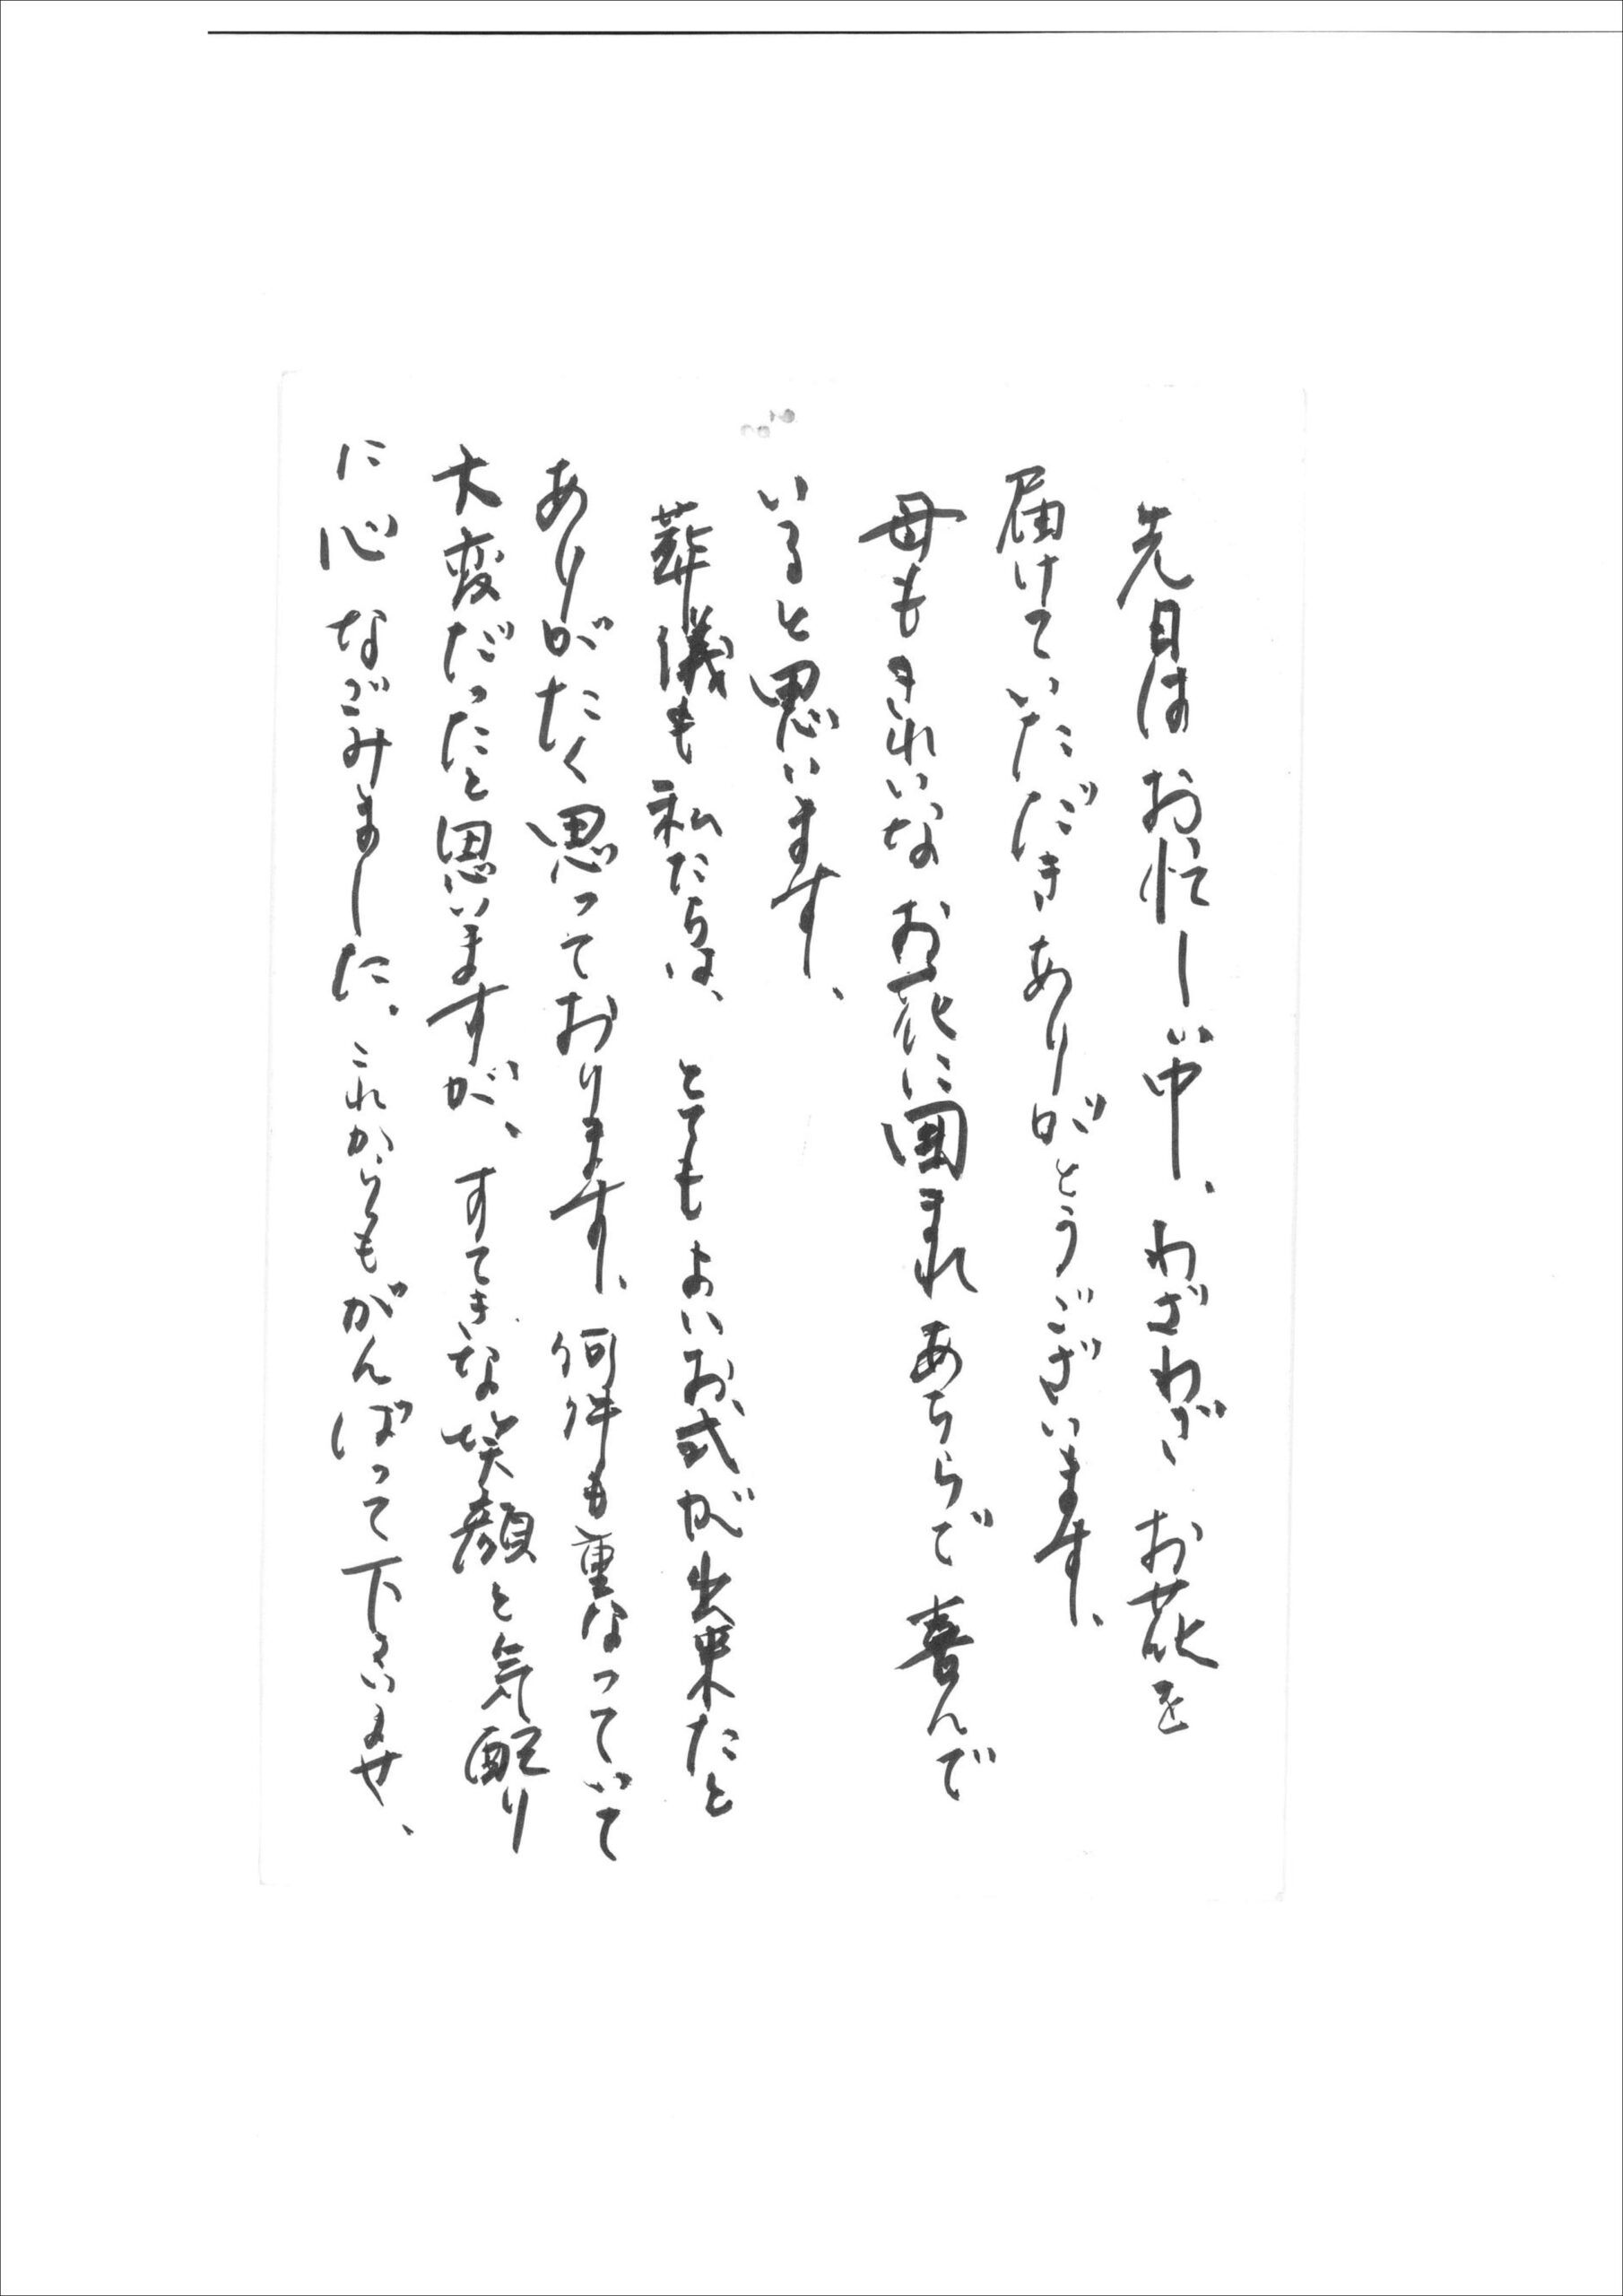 先日はお忙しい中、わざわざお花を
届けていただきありがとうございます、
母もきれいなお花に囲まれあちらで喜んで
いると思います、
葬儀も私たちは、とてもよいお式が出来たと
ありがたく思っております、何件も重なっていて
大変だったと思いますが、すてきな笑顔と気配り
に心なごみました、これからもがんばって下さいませ、